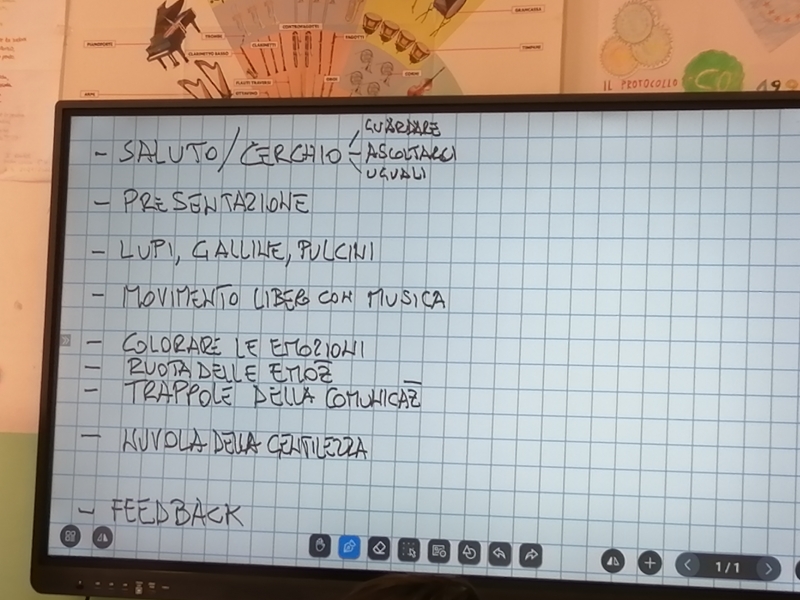 CONTROFAGOTTI
GRANCASSA
TROMBE
CLARINETTI
FAGOTTI
PIANOFORTE
CLARINETTO BASSO
TIMPANI
CORNI
FLAUTI TRAVERSI
OBOI
OTTAVINO
ARPE
IL PROTOCOLLO
GUARDARE
- SALUTO/CERCHIO - ASCOLTARCI
UGUALI
- PRESENTAZIONE
- LUPI, GALLINE, PULCINI
- MOVIMENTO LIBERO CON MUSICA
- COLORARE LE EMOZIONI
- RUOTA DELLE EMOZ
- TRAPPOLE DELLA COMUNICAZ
- NUVOLA DELLA GENTILEZZA
- FEEDBACK
1/1